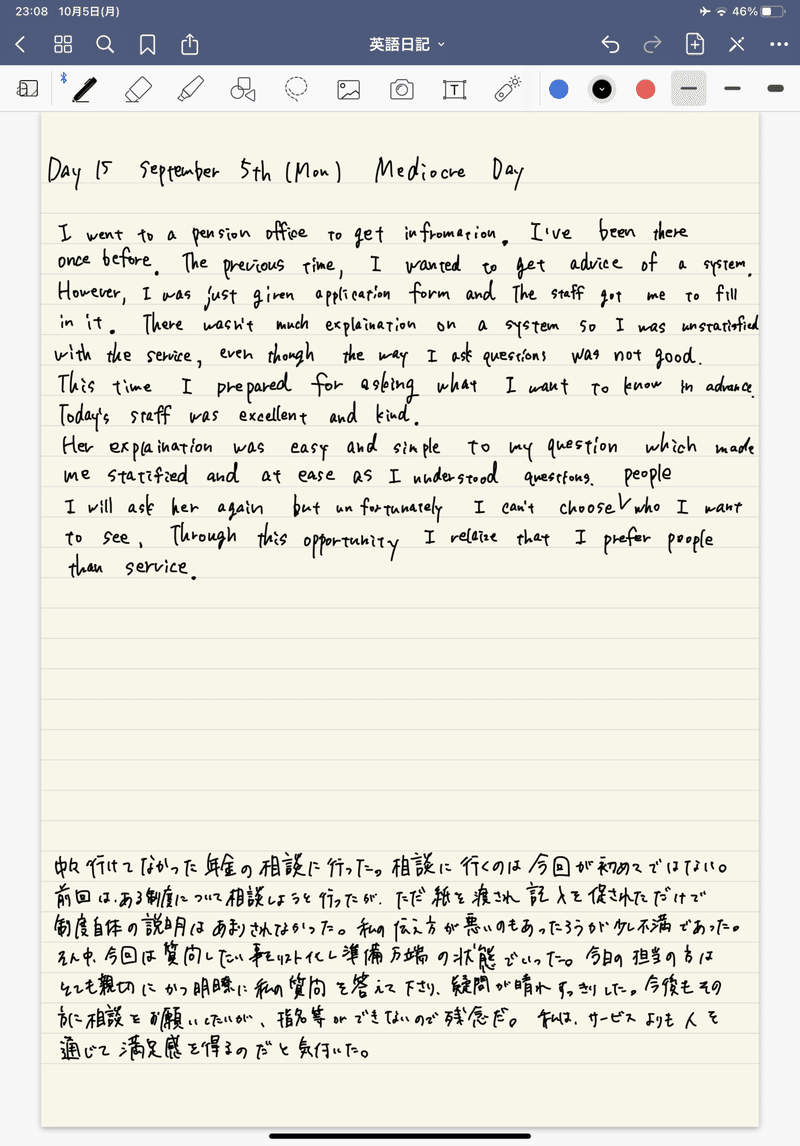 23:08 10月5日(月)
46%
英語日記
T
Day 15 September 5th (Mon) Mediocre Day
I went to a pension office to get infromation. I've been there
once before. The previous time, I wanted to get advice of a system.
However, I was just given application form and The staff got me to fill
in it. There wasn't much explaination on a system so I was unstatisfied
with the service, even though the way I ask questions was not good.
This time I prepared for asking what I want to know in advance.
Today's staff was excellent and kind.
Her explaination was easy and simple to my question which made
me statified and at ease as I understood questions.
people
I will ask her again but unfortunately I can't choose who I want
to see. Through this opportunity I relaize that I prefer people
than service.
中々行けてなかった年金の相談に行った。相談に行くのは今回が初めてではない。
前回は、ある制度について相談しようと行ったが、ただ紙を渡され記入を促されただけで
制度自体の説明はあまりされなかった。私の伝え方が悪いのもあったろうが少し不満であった。
そんな中、今回は質問したい事をリスト化し準備万端の状態でいった。今日の担当の方は
とても親切にかつ明瞭に私の質問を答えて下さり、疑問が晴れすっきりした。今後もその
方に相談をお願いしたいが、指名等ができないので残念だ。私は、サービスよりも人を
通じて満足感を得るのだと気付いた。